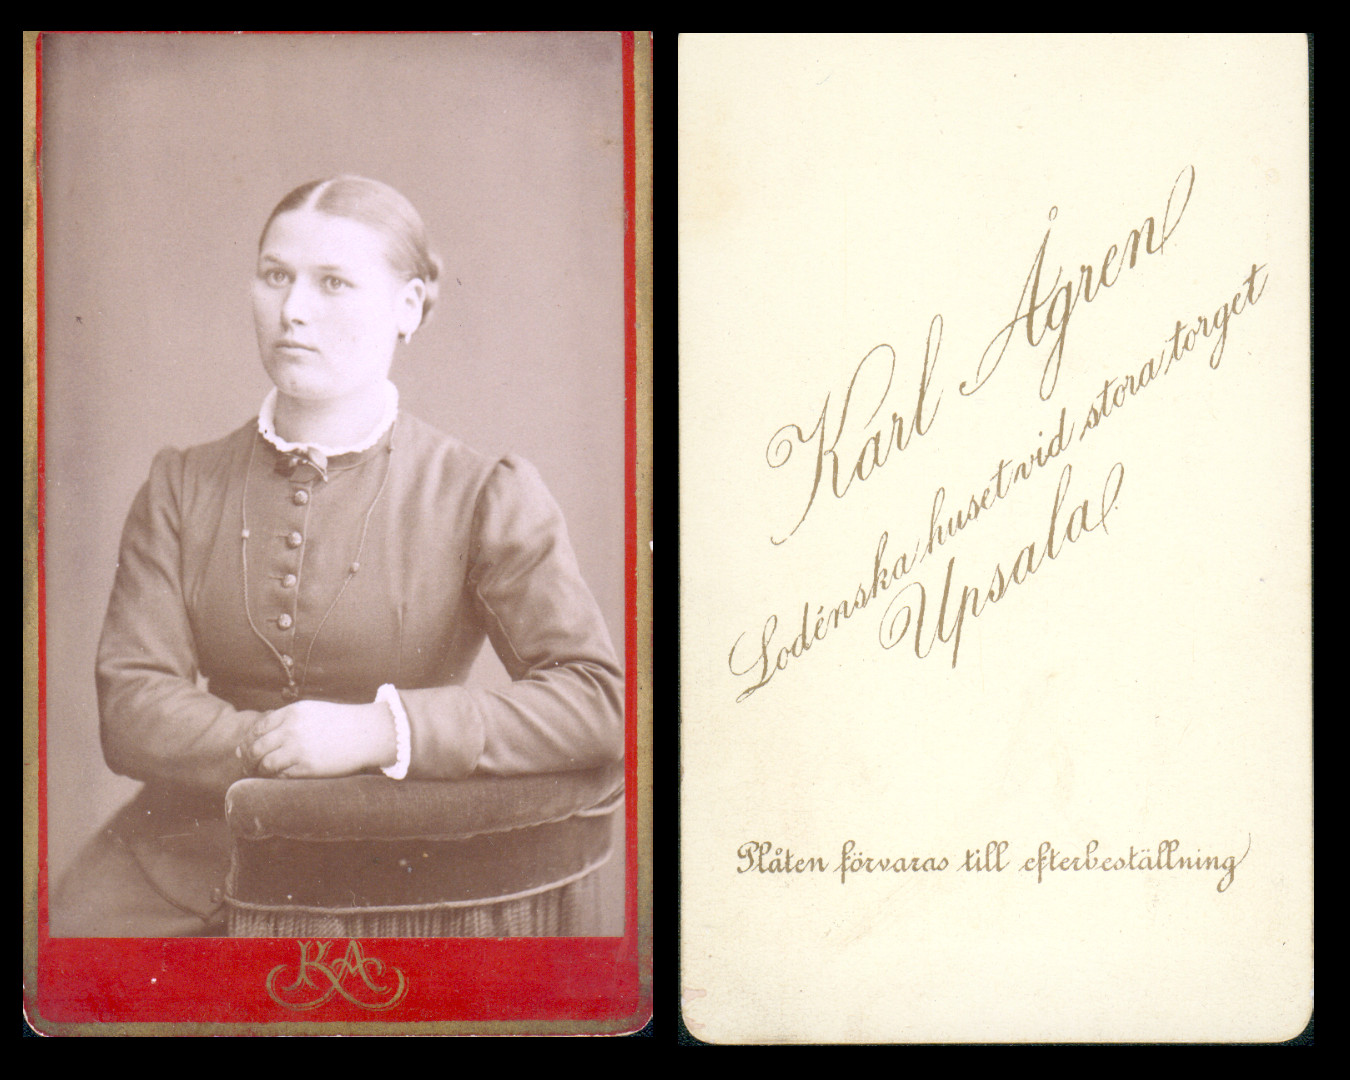 KA
Karl Ågren
Lodénska huset vid stora torget
Upsala.
Plåten förvaras till efterbeställning